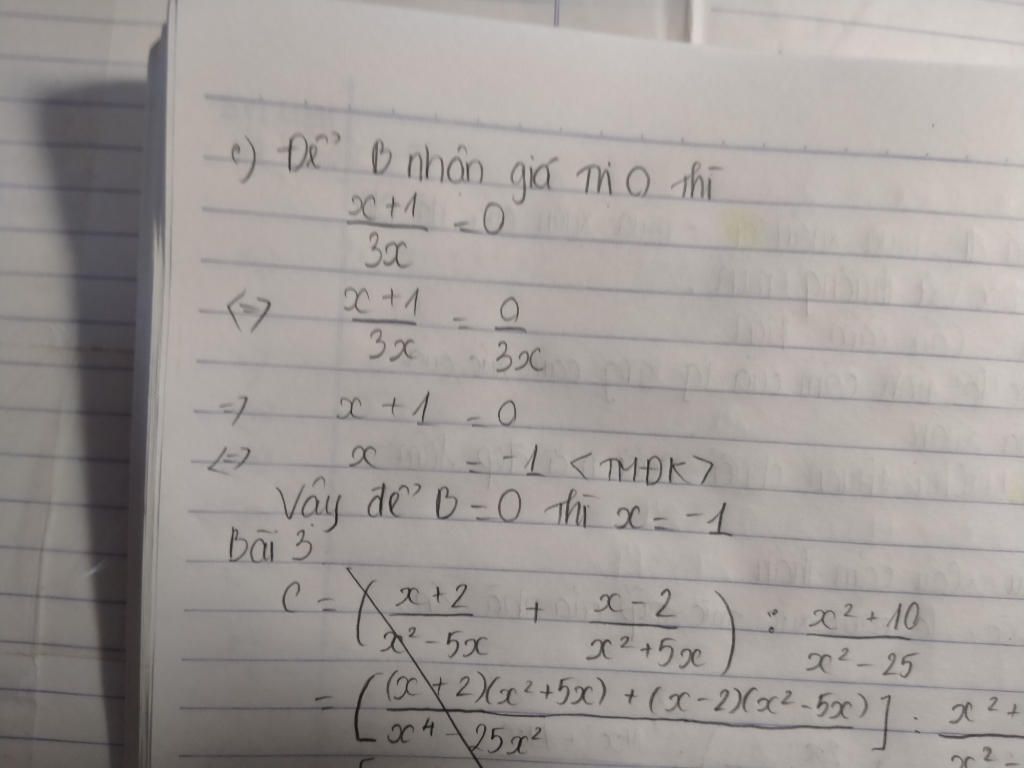 c) Để B nhân giá trị 0 thì
x + 1 / 3x = 0
<=> x + 1 / 3x = 0 / 3x
=> x + 1 = 0
<=> x = -1 <TMĐK>
Vậy để B = 0 thì x = -1
Bài 3
C = ( x + 2 / x² - 5x + x - 2 / x² + 5x ) : x² + 10 / x² - 25
= [ (x + 2)(x² + 5x) + (x - 2)(x² - 5x) / x⁴ - 25x² ] : x² + / x² -